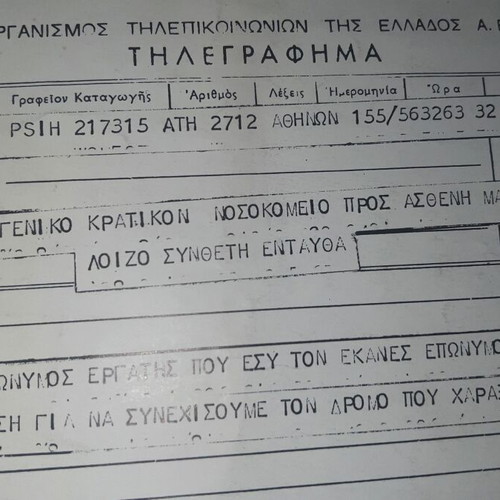 ΡΓΑΝΙΣΜΟΣ ΤΗΛΕΠΙΚΟΙΝΩΝΙΩΝ ΤΗΣ ΕΛΛΑΔΟΣ Α.
ΤΗΛΕΓΡΑΦΗΜΑ
Γραφεῖον Καταγωγῆς Ἀριθμὸς Λέξεις Ἡμερομηνία Ὥρα
PSIH 217315 ATH 2712 ΑΘΗΝΩΝ 155/563263 32
ΓΕΝΙΚΟ ΚΡΑΤΙΚΟΝ ΝΟΣΟΚΟΜΕΙΟ ΠΡΟΣ ΑΣΘΕΝΗ ΜΑ
ΛΟΙΖΟ ΣΥΝΘΕΤΗ ΕΝΤΑΥΘΑ
ΩΝΥΜΟΣ ΕΡΓΑΤΗΣ ΠΟΥ ΕΣΥ ΤΟΝ ΕΚΑΝΕΣ ΕΠΩΝΥΜΟ
ΣΗ ΓΙΑ ΝΑ ΣΥΝΕΧΙΣΟΥΜΕ ΤΟΝ ΔΡΟΜΟ ΠΟΥ ΧΑΡΑΞ